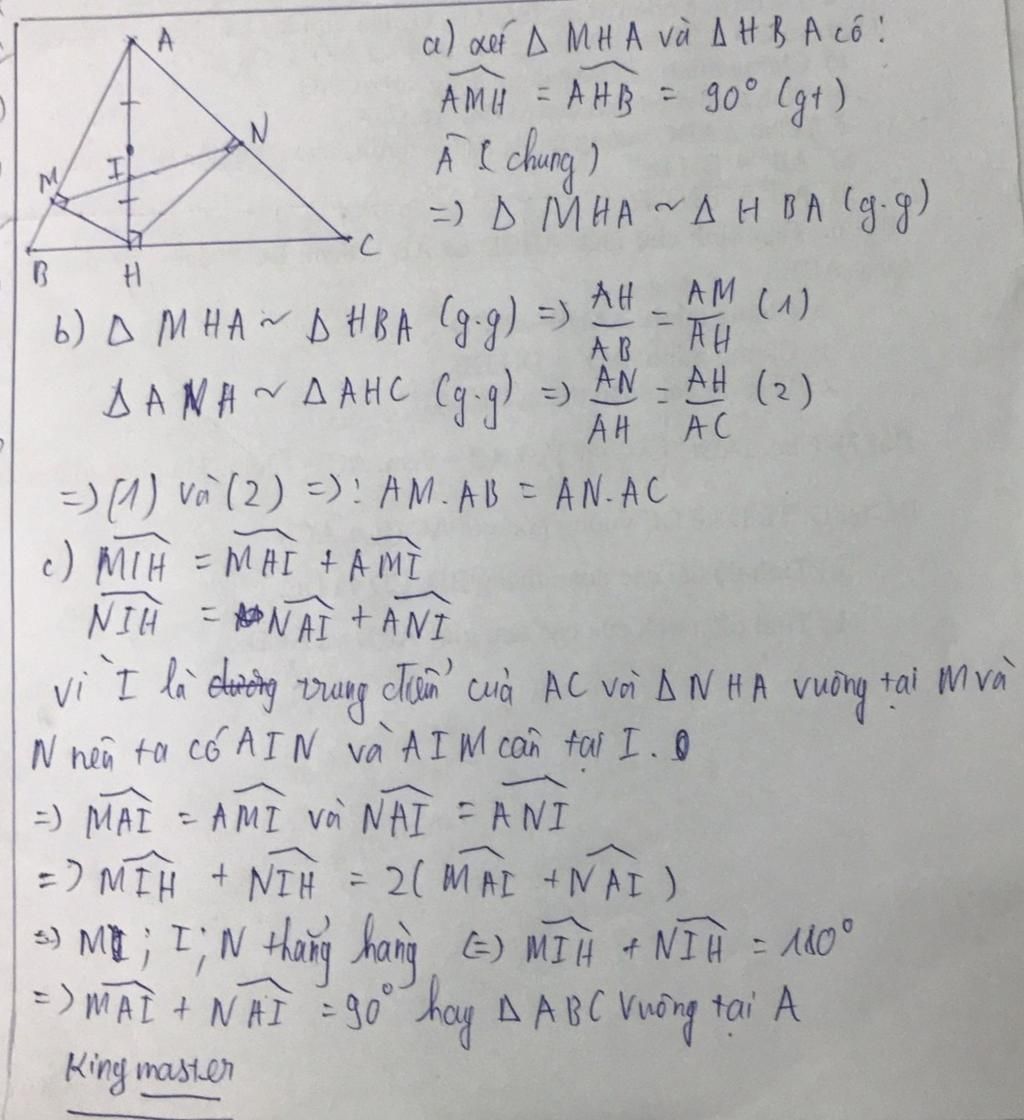 A
N
I
M
B
H
C
a) xét Δ MHA và Δ HBA có:
AMH = AHB = 90° (gt)
Â (chung)
=> Δ MHA ~ Δ HBA (g.g)
b) Δ MHA ~ Δ HBA (g.g) => AH/AB = AM/AH (1)
Δ ANH ~ Δ AHC (g.g) => AN/AH = AH/AC (2)
=> (1) và (2) =>: AM.AB = AN.AC
c) MIH = MAI + AMI
NIH = NAI + ANI
Vì I là trung điểm của AC và Δ NHA vuông tại M và
N nên ta có AIN và AIM cân tại I.
=> MAI = AMI và NAI = ANI
=> MIH + NIH = 2( MAI + NAI )
=> M; I; N thẳng hàng (=) MIH + NIH = 180°
=> MAI + NAI = 90° hay Δ ABC Vuông tại A
King master